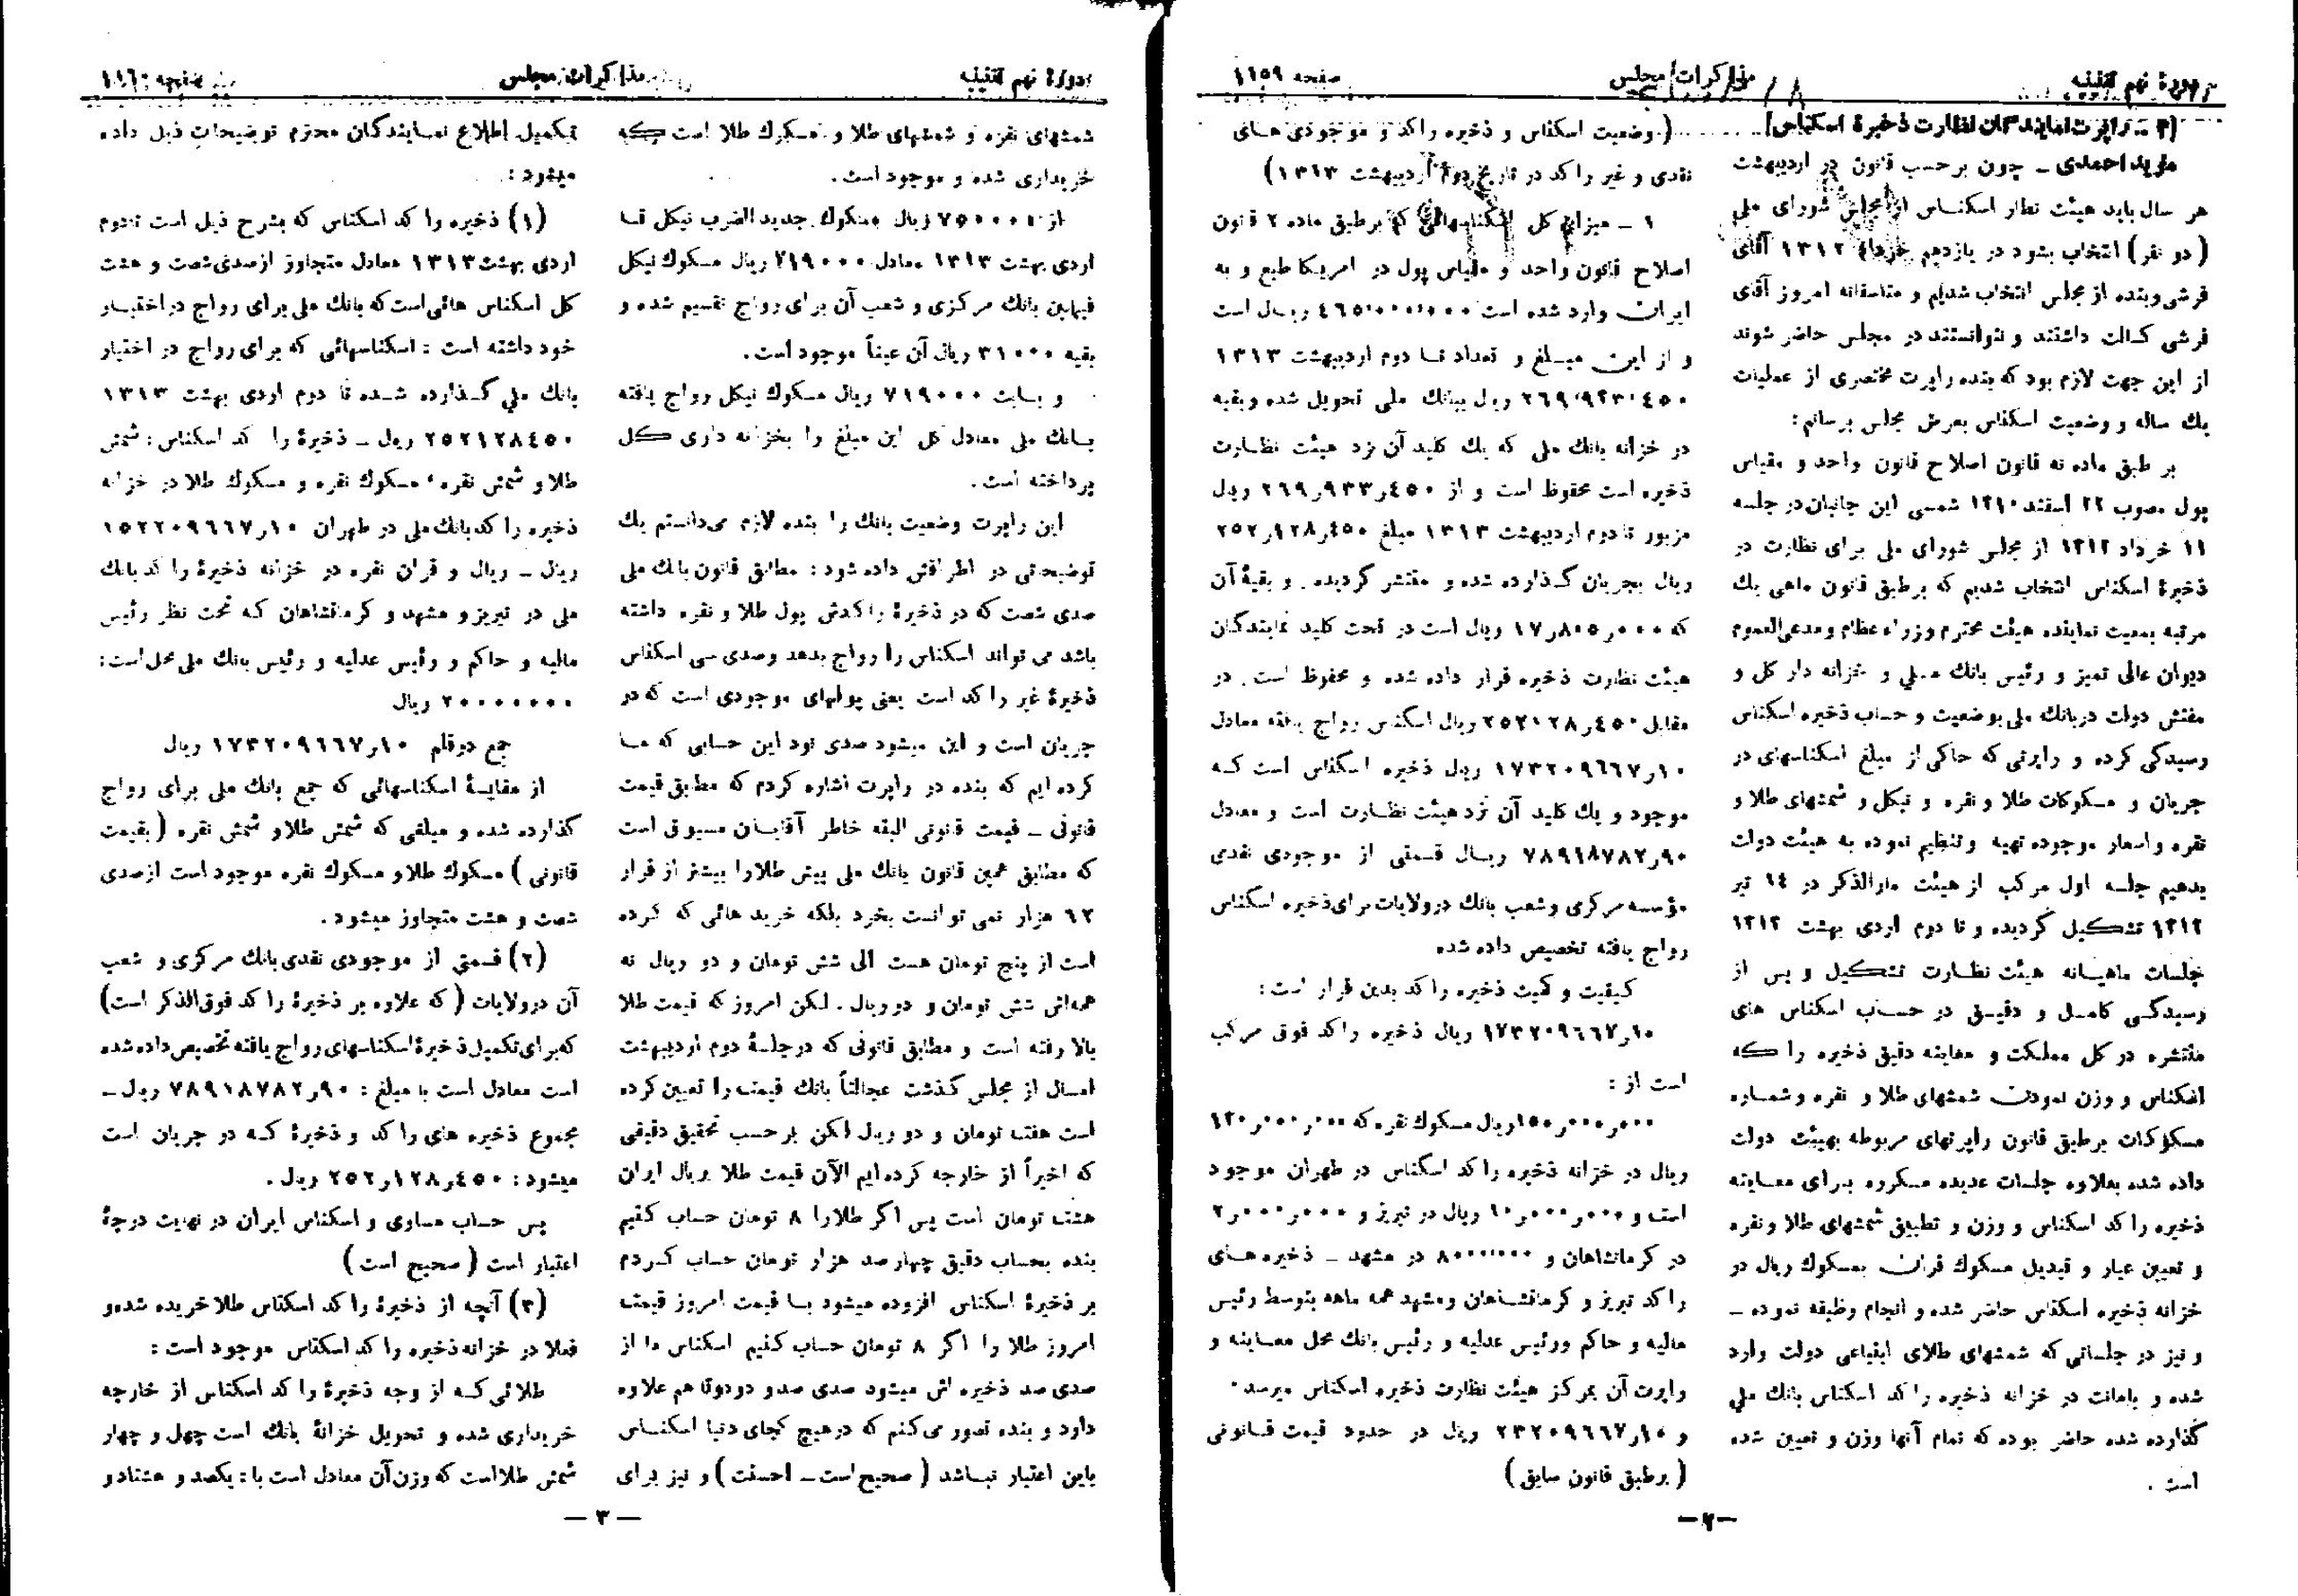 دورهٔ نهم تقنینیه
مذاکرات مجلس
صفحه ۱۱۵۹
[۳ ــ راپرت نمایندگان نظارت ذخیرهٔ اسکناس]
مؤید احمدی ــ چون برحسب قانون در اردیبهشت
هر سال باید هیئت نظار اسکناس از مجلس شورای ملی
(دو نفر) انتخاب بشود در یازدهم خرداد ۱۳۱۲ آقای
قرشی و بنده از مجلس انتخاب شدیم و متاسفانه امروز آقای
قرشی کسالت داشتند و نتوانستند در مجلس حاضر شوند
از این جهت لازم بود که بنده راپرت مختصری از عملیات
یك ساله و وضعیت اسکناس بعرض مجلس برسانم:
بر طبق ماده نه قانون اصلاح قانون واحد و مقیاس
پول مصوب ۲۲ اسفند ۱۳۱۰ شمسی این جانبان در جلسه
۱۱ خرداد ۱۳۱۲ از مجلس شورای ملی برای نظارت در
ذخیرهٔ اسکناس انتخاب شدیم که برطبق قانون ماهی یك
مرتبه بمعیت نماینده هیئت محترم وزراء عظام و مدعی‌العموم
دیوان عالی تمیز و رئیس بانك ملی و خزانه دار کل و
مفتش دولت در بانك ملی بوضعیت و حساب ذخیره اسکناس
رسیدگی کرده و راپرتی که حاکی از مبلغ اسکناسهای در
جریان و مسکوکات طلا و نقره و نیکل و شمشهای طلا و
نقره و اسعار موجوده تهیه وتنظیم نموده به هیئت دولت
بدهیم جلسه اول مرکب از هیئت مارالذکر در ۱٤ تیر
۱۳۱۲ تشکیل گردیده و تا دوم اردی بهشت ۱۳۱۳
جلسات ماهیانه هیئت نظارت تشکیل و پس از
رسیدگی کامل و دقیق در حساب اسکناس های
منتشره در کل مملکت و معاینه دقیق ذخیره راکد
اسکناس و وزن نمودن شمشهای طلا و نقره و شماره
مسکوکات برطبق قانون راپرتهای مربوطه بهیئت دولت
داده شده بعلاوه جلسات عدیده مکرره برای معاینه
ذخیره راکد اسکناس و وزن و تطبیق شمشهای طلا و نقره
و تعیین عیار و تبدیل مسکوك قران بمسکوك ریال در
خزانه ذخیره اسکناس حاضر شده و انجام وظیفه نموده ــ
و نیز در جلساتی که شمشهای طلای ابتیاعی دولت وارد
شده و بامانت در خزانه ذخیره راکد اسکناس بانك ملی
گذارده شده حاضر بوده که تمام آنها وزن و تعیین شده
است .
(وضعیت اسکناس و ذخیره راکد و موجودی های
نقدی و غیر راکد در تاریخ دوم اردیبهشت ۱۳۱۳)
۱ ــ میزان کل اسکناسهائی که برطبق ماده ۲ قانون
اصلاح قانون واحد و مقیاس پول در امریکا طبع و به
ایران وارد شده است ٤٦٥٬۰۰۰٬۰۰۰ ریال است
و از این مبلغ و تعداد تا دوم اردیبهشت ۱۳۱۳
۲٦۹٬۹۳۳٬٤٥۰ ریال ببانك ملی تحویل شده وبقیه
در خزانه بانك ملی که یك کلید آن نزد هیئت نظارت
ذخیره است محفوظ است و از ٤٥۰ر۹۳۳ر۲٦۹ ریال
مزبور تا دوم اردیبهشت ۱۳۱۳ مبلغ ٤٥۰ر۱۲۸ر۲٥۲
ریال بجریان گذارده شده و منتشر گردیده . و بقیهٔ آن
که ۰۰۰ر۸۰٥ر۱۷ ریال است در تحت کلید نمایندگان
هیئت نظارت ذخیره قرار داده شده و محفوظ است . در
مقابل ٤٥۰ر۲٥۲۱۲۸ ریال اسکناس رواج یافته معادل
۱۰ر۱۷۳۲۰۹٦٦۷ ریال ذخیره اسکناس است که
موجود و یك کلید آن نزد هیئت نظارت است و معادل
۹۰ر۷۸۹۱۸۷۸۲ ریال قسمتی از موجودی نقدی
مؤسسه مرکزی وشعب بانك در ولایات برای ذخیره اسکناس
رواج یافته تخصیص داده شده
کیفیت و کمیت ذخیره راکد بدین قرار است :
۱۰ر۱۷۳۲۰۹٦٦۷ ریال ذخیره راکد فوق مرکب
است از :
۰۰۰ر۰۰۰ر۱٥۰ ریال مسکوك نقره که ۰۰۰ر۰۰۰ر۱۳۰
ریال در خزانه ذخیره راکد اسکناس در طهران موجود
است و ۰۰۰ر۰۰۰ر۱۰ ریال در تبریز و ۰۰۰ر۰۰۰ر۲
در کرمانشاهان و ۸۰۰۰٬۰۰۰ در مشهد ــ ذخیره های
راکد تبریز و کرمانشاهان و مشهد همه ماهه بتوسط رئیس
مالیه و حاکم و رئیس عدلیه و رئیس بانك محل معاینه و
راپرت آن بمرکز هیئت نظارت ذخیره اسکناس میرسد.
و ۱۰ر۲۳۲۰۹٦٦۷ ریال در حدود قیمت قانونی
(برطبق قانون سابق)
ــ۲ــ
دورهٔ نهم تقنینیه
مذاکرات مجلس
صفحه ۱۱٦۰
شمشهای نقره و شمشهای طلا و مسکوك طلا است که
خریداری شده و موجود است .
از ۷٥۰۰۰۰ ریال مسکوك جدید الضرب نیکل تا
اردی بهشت ۱۳۱۳ معادل ۷۱۹۰۰۰ ریال مسکوك نیکل
فیمابین بانك مرکزی و شعب آن برای رواج تقسیم شده و
بقیه ۳۱۰۰۰ ریال آن عیناً موجود است.
و بابت ۷۱۹۰۰۰ ریال مسکوك نیکل رواج یافته
بانك ملی معادل کل این مبلغ را بخزانه داری کل
پرداخته است .
این راپرت وضعیت بانك را بنده لازم می‌دانستم یك
توضیحاتی در اطرافش داده شود : مطابق قانون بانك ملی
صدی شصت که در ذخیرهٔ راکدش پول طلا و نقره داشته
باشد می تواند اسکناس را رواج بدهد وصدی سی اسکناس
ذخیرهٔ غیر راکد است یعنی پولهای موجودی است که در
جریان است و این میشود صدی نود این حسابی که ما
کرده ایم که بنده در راپرت اشاره کردم که مطابق قیمت
قانونی ــ قیمت قانونی البته خاطر آقایان مسبوق است
که مطابق همین قانون بانك ملی بیش طلا را بیشتر از قرار
٦۲ هزار نمی توانست بخرد بلکه خرید هائی که کرده
است از پنج تومان هست الی شش تومان و دو ریال نه
همه‌اش شش تومان و دو ریال . لکن امروز که قیمت طلا
بالا رفته است و مطابق قانونی که در جلسهٔ دوم اردیبهشت
امسال از مجلس گذشت عجالتاً بانك قیمت را تعیین کرده
است هفت تومان و دو ریال لکن بر حسب تحقیق دقیقی
که اخیراً از خارجه کرده ایم الآن قیمت طلا بریال ایران
هشت تومان است پس اگر طلا را ۸ تومان حساب کنیم
بنده بحساب دقیق چهار صد هزار تومان حساب کردم
بر ذخیرهٔ اسکناس افزوده میشود با قیمت امروز قیمت
امروز طلا را اگر ۸ تومان حساب کنیم اسکناس ما از
صدی صد ذخیره اش میشود صدی صدو دو دوتا هم علاوه
دارد و بنده تصور می‌کنم که در هیچ کجای دنیا اسکناس
باین اعتبار نباشد (صحیح است ــ احسنت) و نیز برای
تکمیل اطلاع نمایندگان محترم توضیحات ذیل داده
میشود :
(۱) ذخیره راکد اسکناس که بشرح ذیل است تا دوم
اردی بهشت ۱۳۱۳ معادل متجاوز از صدی شصت و هشت
کل اسکناس هائی است که بانك ملی برای رواج در اختیار
خود داشته است : اسکناسهائی که برای رواج در اختیار
بانك ملی گذارده شده تا دوم اردی بهشت ۱۳۱۳
۲٥۲۱۲۸٤٥۰ ریال ــ ذخیرهٔ راکد اسکناس : شمش
طلا و شمش نقره ، مسکوك نقره و مسکوك طلا در خزانه
ذخیره راکد بانك ملی در طهران ۱۰ر۱٥۳۲۰۹٦٦۷
ریال ــ ریال و قران نقره در خزانه ذخیرهٔ راکد بانك
ملی در تبریز و مشهد و کرمانشاهان که تحت نظر رئیس
مالیه و حاکم و رئیس عدلیه و رئیس بانك ملی محل است :
۲۰۰۰۰۰۰۰ ریال
جمع دو قلم ۱۰ر۱۷۳۲۰۹٦٦۷ ریال
از مقایسهٔ اسکناسهائی که جمع بانك ملی برای رواج
گذارده شده و مبلغی که شمش طلا و شمش نقره (بقیمت
قانونی) مسکوك طلا و مسکوك نقره موجود است از صدی
شصت و هشت متجاوز میشود .
(۲) قسمتی از موجودی نقدی بانك مرکزی و شعب
آن در ولایات (که علاوه بر ذخیرهٔ راکد فوق‌الذکر است)
که برای تکمیل ذخیرهٔ اسکناسهای رواج یافته تخصیص داده شده
است معادل است با مبلغ : ۹۰ر۷۸۹۱۸۷۸۲ ریال ــ
مجموع ذخیره های راکد و ذخیرهٔ که در جریان است
میشود : ٤٥۰ر۱۲۸ر۲٥۲ ریال .
پس حساب مساوی و اسکناس ایران در نهایت درجهٔ
اعتبار است (صحیح است)
(۳) آنچه از ذخیرهٔ راکد اسکناس طلا خریده شده و
فعلا در خزانه ذخیره راکد اسکناس موجود است :
طلائی که از وجه ذخیرهٔ راکد اسکناس از خارجه
خریداری شده و تحویل خزانهٔ بانك است چهل و چهار
شمش طلا است که وزن آن معادل است با : یکصد و هشتاد و
ــ ۳ ــ